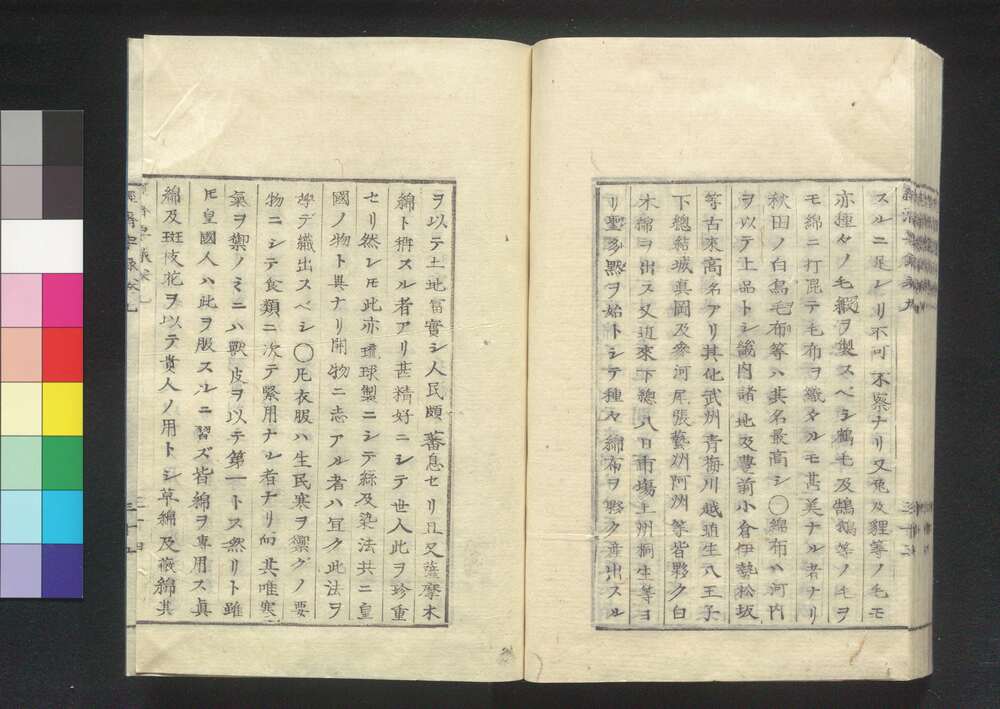 スルニ足レリ不可不察ナリ又兎及貍等ノ毛モ
亦種々ノ毛緞ヲ製スベシ鶴毛及鵠鵝等ノ毛ヲ
モ綿ニ打混テ毛布ヲ織タルモ甚美ナル者ナリ
秋田ノ白鳥毛布等ハ其名最高シ〇綿布ハ河内
ヲ以テ上品トシ畿内諸地及豊前小倉伊勢松坂
等古來高名アリ其他武州青梅川越迪生八王子
下總結城真岡及参河尾張藝州阿州等皆夥ク白
木綿ヲ出ス又近來下總八日市場上州桐生等ヨ
リ聖多黙ヲ始トシテ種々綿布ヲ夥ク産出スル
ヲ以テ土地富實シ人民頗蕃息セリ且又薩摩木
綿ト稱スル者アリ甚精好ニシテ世人此ヲ珍重
セリ然レモ此亦琉球製ニシテ絲及染法共ニ皇
國ノ物ト異ナリ開物ニ志アル者ハ宜ク此法ヲ
學デ織出スベシ〇凡衣服ハ生民寒ヲ禦グノ要
物ニシテ食類ニ次テ緊用ナル者ナリ而其唯寒
氣ヲ禦ノミニハ獸皮ヲ以テ第一トス然リト雖
ドモ皇國人ハ此ヲ服スルニ習ズ皆綿ヲ専用ス眞
綿及斑枝花ヲ以テ貴人ノ用トシ草綿及薇綿其